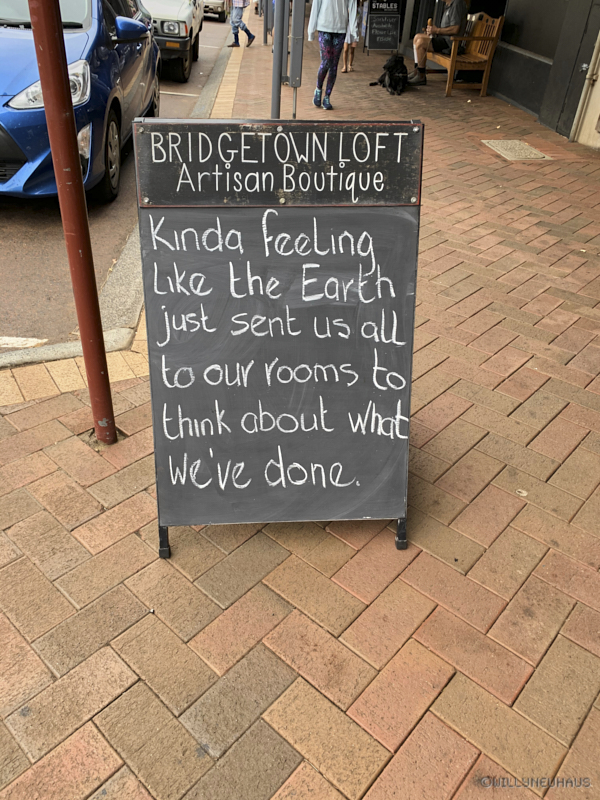 STABLES
BRIDGETOWN LOFT
Artisan Boutique
Kinda feeling
like the Earth
just sent us all
to our rooms to
think about what
we've done.
©WILLUNEUHAUS